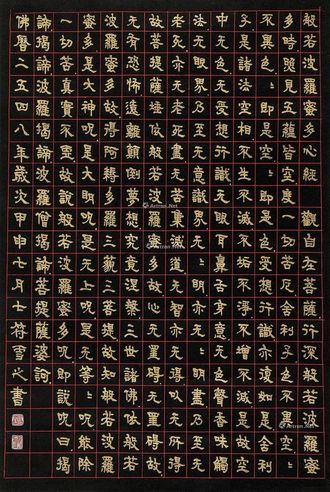 般若波羅蜜多心經 觀自在菩薩行深般若波羅蜜
多時照見五蘊皆空度一切苦厄舍利子色不異空〻
不異色〻即是空〻即是色受想行識亦復如是舍利
子是諸法空相不生不滅不垢不淨不增不減是故空
中无色无受想行識无眼耳鼻舌身意无色聲香味觸
法无眼界乃至无意識界无〻明亦无〻明盡乃至无
老死亦无老死盡无苦集滅道无智亦无得以无所得
故菩提薩埵依般若波羅蜜多故心无罣礙无罣礙故
无有恐怖遠離顛倒夢想究竟涅槃三世諸佛依般若
波羅蜜多故得阿耨多羅三藐三菩提故知般若波羅
蜜多是大神咒是大明咒是无上咒是无等〻咒能除
一切苦真實不虛故說般若波羅蜜多咒即說咒曰揭
諦揭諦波羅揭諦波羅僧揭諦菩提薩婆訶
佛曆二五四八年歲次甲申七月七符雪之書